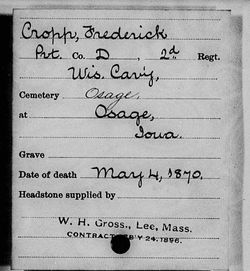 Cropp, Frederick
Pvt. Co. D, 2d Regt.
Wis. Cav'y,
Cemetery Osage,
at Osage,
Iowa.
Grave
Date of death May 4, 1870.
Headstone supplied by
W. H. Gross, Lee, Mass.
CONTRACT 24, 1896.